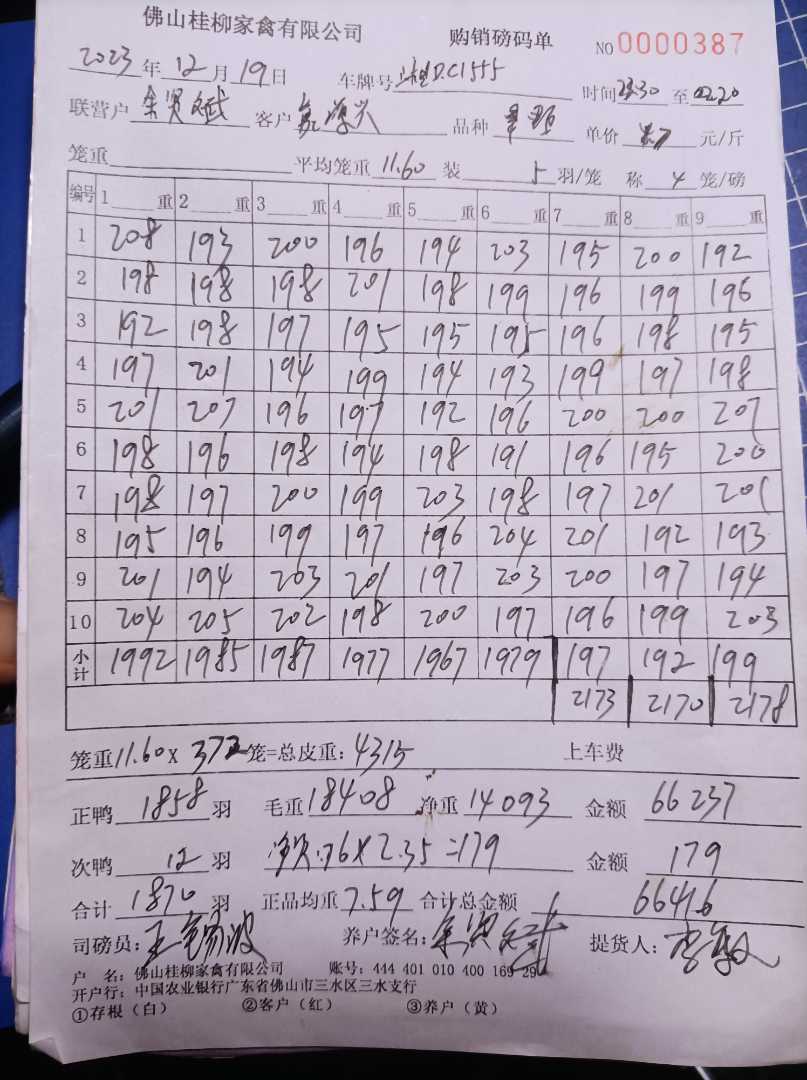 佛山桂柳家禽有限公司 购销磅码单 NO 0000387
2023年12月19日 车牌号 D.C1555 时间23:30至02:20
联营户 余贤斌 客户 品种 单价 4.7 元/斤
笼重 平均笼重 11.60 装 5 羽/笼 称 4 笼/磅
编号 1 重 2 重 3 重 4 重 5 重 6 重 7 重 8 重 9 重
1 208 193 200 196 194 203 195 200 192
2 198 198 198 201 198 199 196 199 196
3 192 198 197 195 195 195 196 198 195
4 197 201 194 199 194 193 199 197 198
5 201 207 196 197 192 196 200 200 207
6 198 196 198 194 198 191 196 195 200
7 198 197 200 199 203 198 197 201 201
8 195 196 199 197 196 204 201 192 193
9 201 194 203 201 197 203 200 197 194
10 204 205 202 198 200 197 196 199 203
小计 1992 1985 1987 1977 1967 1979 197 192 199
2173 2170 2178
笼重11.60 x 372 笼=总皮重: 4315 上车费
正鸭 1858 羽 毛重 18408 净重 14093 金额 66237
次鸭 12 羽 净重:76 X 2.35 = 179 金额 179
合计 1870 羽 正品均重 7.59 合计总金额 66416
司磅员: 养户签名: 余贤斌 提货人:
户 名: 佛山桂柳家禽有限公司 账号: 444 401 010 400 169 29
开户行: 中国农业银行广东省佛山市三水区三水支行
①存根(白) ②客户(红) ③养户(黄)